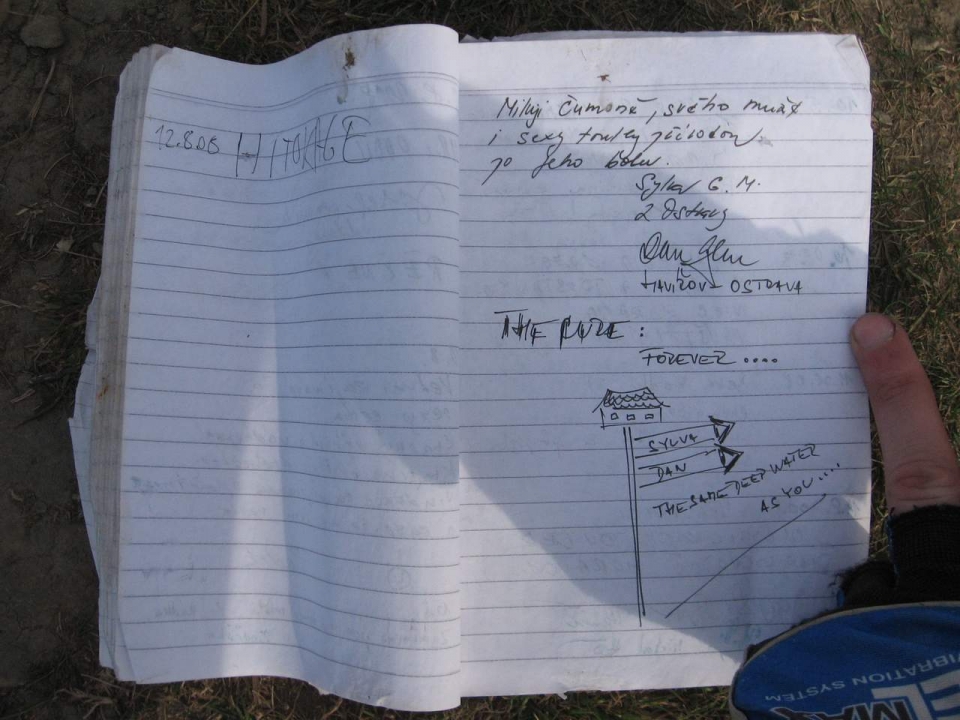 12.808
Miluji Čumoně, svého muže
i sexy toulky přírodou
po jeho boku.
Sylva G. M.
z Ostravy
Dan
HAVÍŘOV OSTRAVA
THE CURE :
FOREVER ....
SYLVA
DAN
THE SAME DEEP WATER
AS YOU ....
VIBRATION SYSTEM